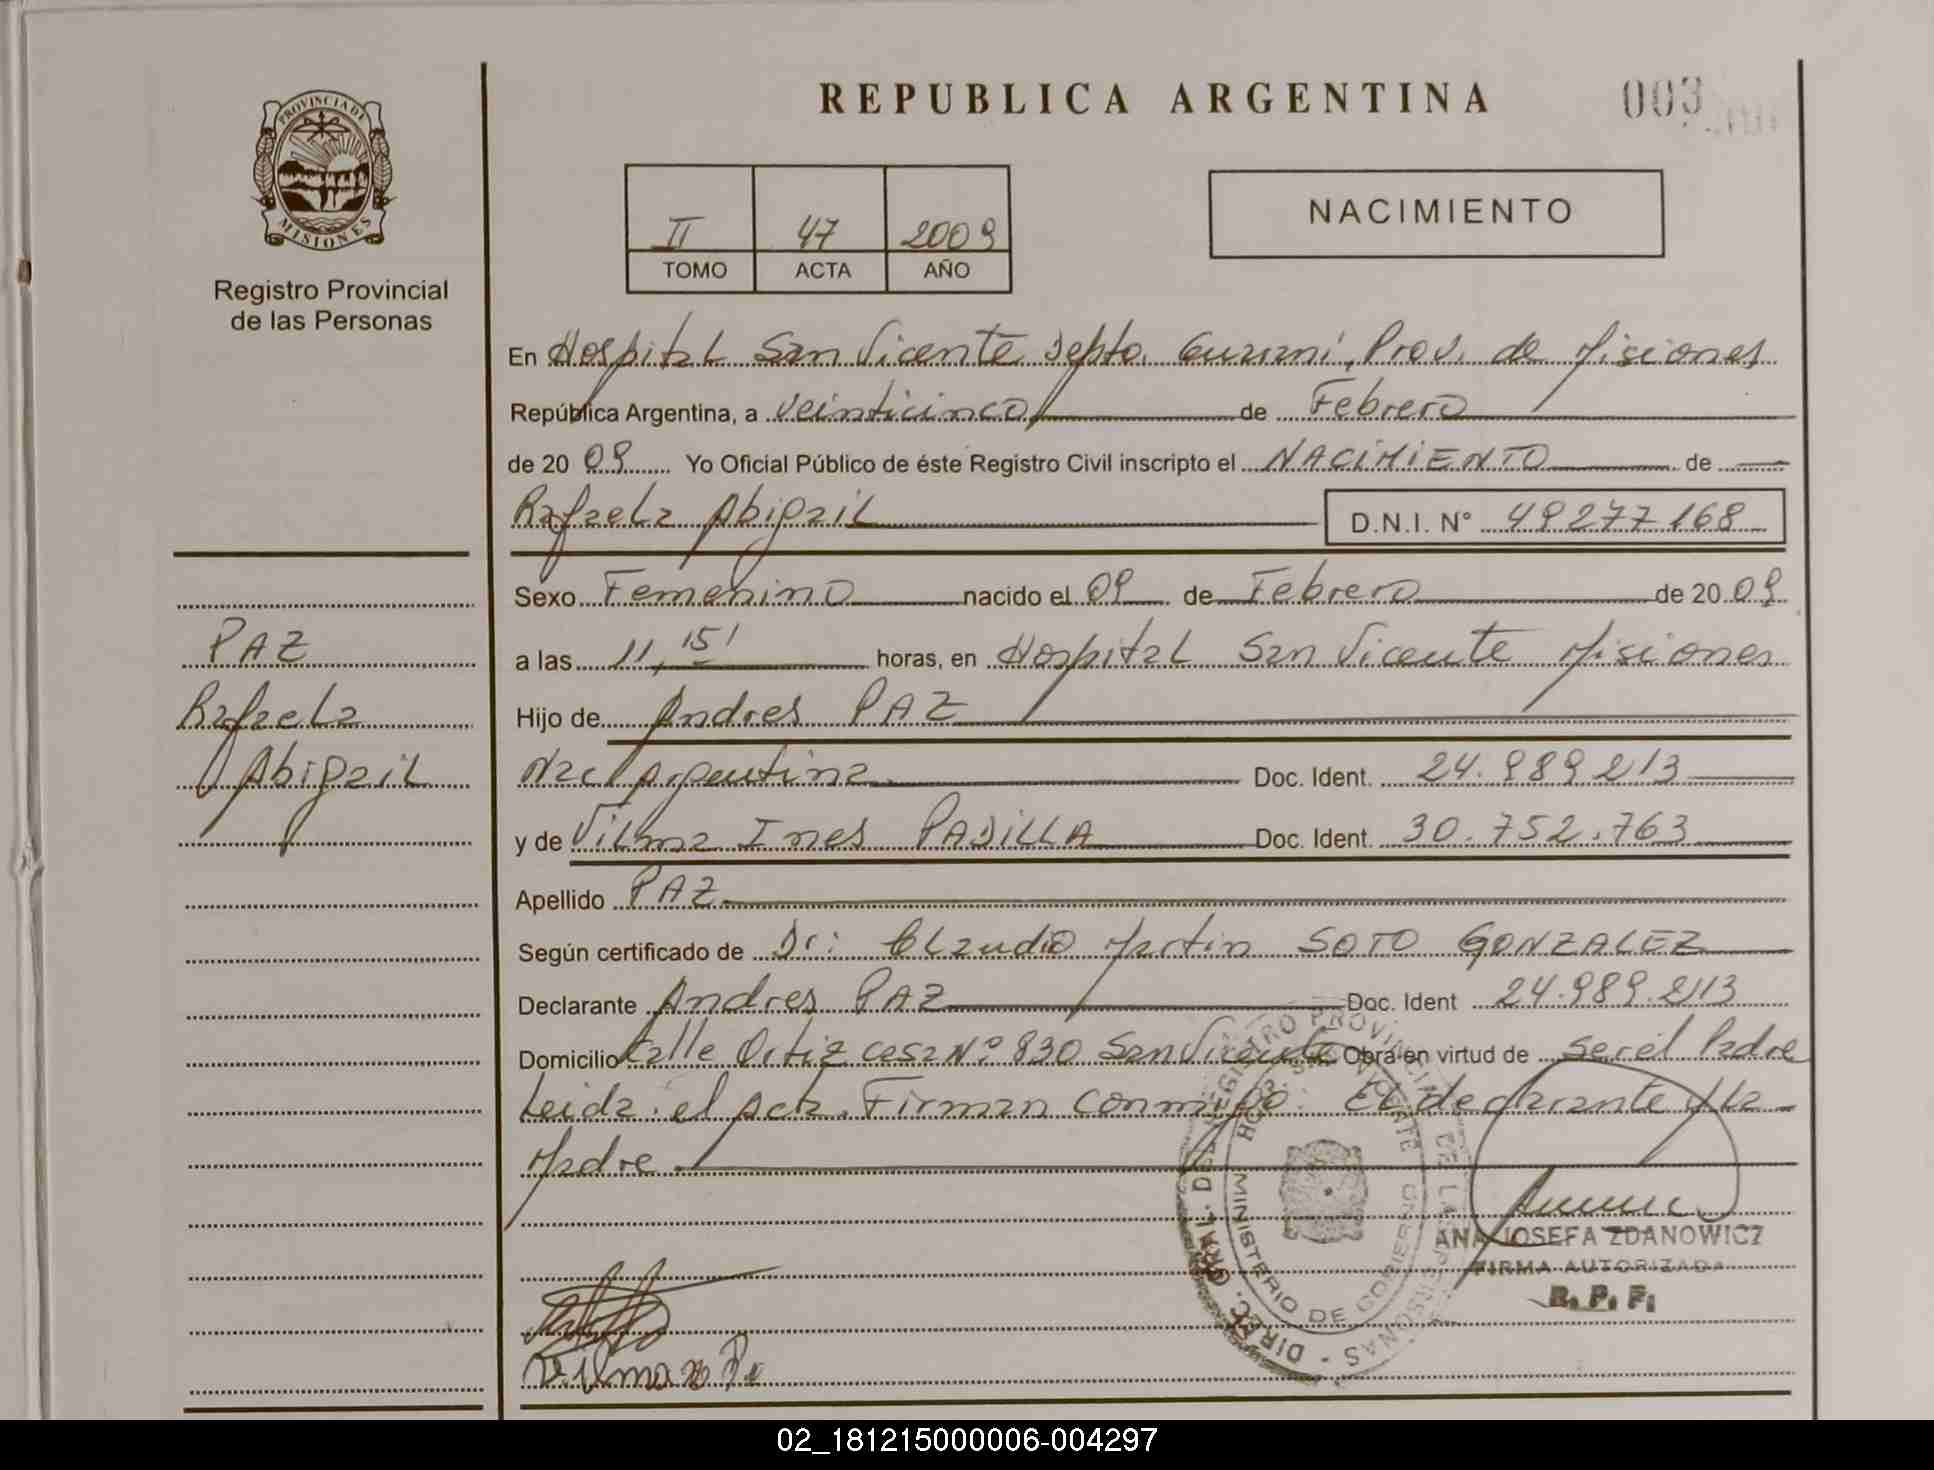 REPUBLICA ARGENTINA
003
PROVINCIA DE
MISIONES
Registro Provincial
de las Personas
II 47 2009
TOMO ACTA AÑO
NACIMIENTO
En Hospital San Vicente Depto. Guaraní, Prov. de Misiones
República Argentina, a veinticinco de Febrero
de 20 09 Yo Oficial Público de éste Registro Civil inscripto el NACIMIENTO de
Rafaela Abigail D.N.I. N° 49277168
Sexo Femenino nacido el 09 de Febrero de 20 09
a las 11,15' horas, en Hospital San Vicente Misiones
Hijo de Andres PAZ
Nac Argentina Doc. Ident. 24.989.213
y de Vilma Ines PADILLA Doc. Ident. 30.752.763
Apellido PAZ
Según certificado de Dr: Claudio Martin SOTO GONZALEZ
Declarante Andres PAZ Doc. Ident 24.989.213
Domicilio Calle Ortiz casa N° 830 San Vicente Obra en virtud de ser el Padre
Leida el acta. Firman conmigo: El declarante y la
Madre
PAZ
Rafaela
Abigail
MINISTERIO DE
ANA JOSEFA ZDANOWICZ
FIRMA AUTORIZADA
R. P. P.
Vilma
02_181215000006-004297